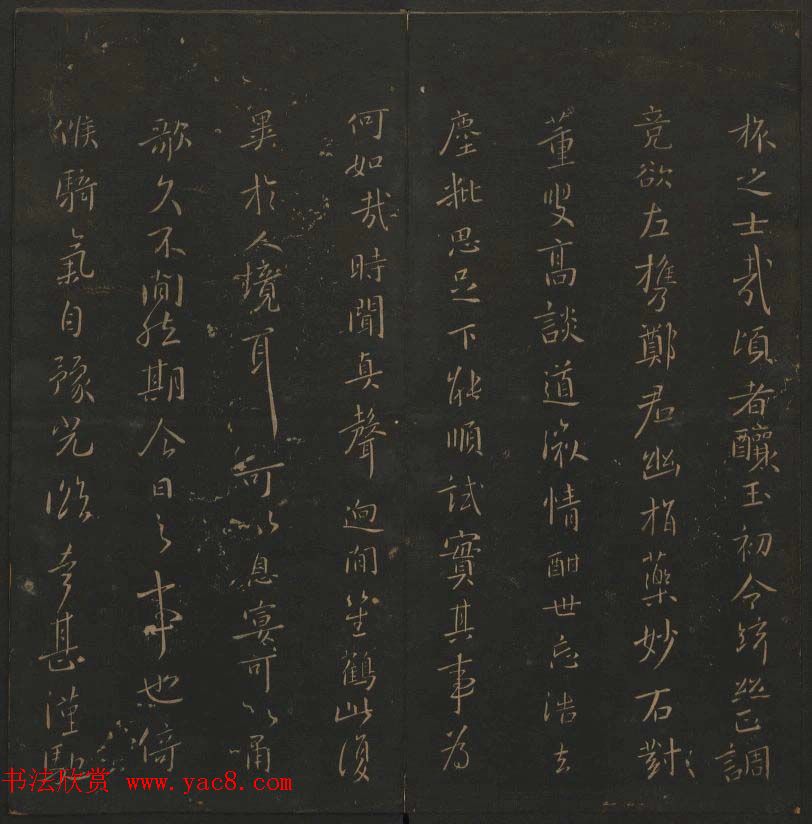 旅之士哉頃者釀玉初令錚絲已調
竟欲左攜鄭君幽指藥妙石對
董叟高談道激情酣世忘浩去
塵粃思足下能順試實其事為
何如哉時聞真聲迥間笙鶴此復
異於人境耳可以息宴可以誦
歌久不間然期今日之事也倚
候騎氣自豫光顧幸甚謹
书法欣赏 www.yac8.com